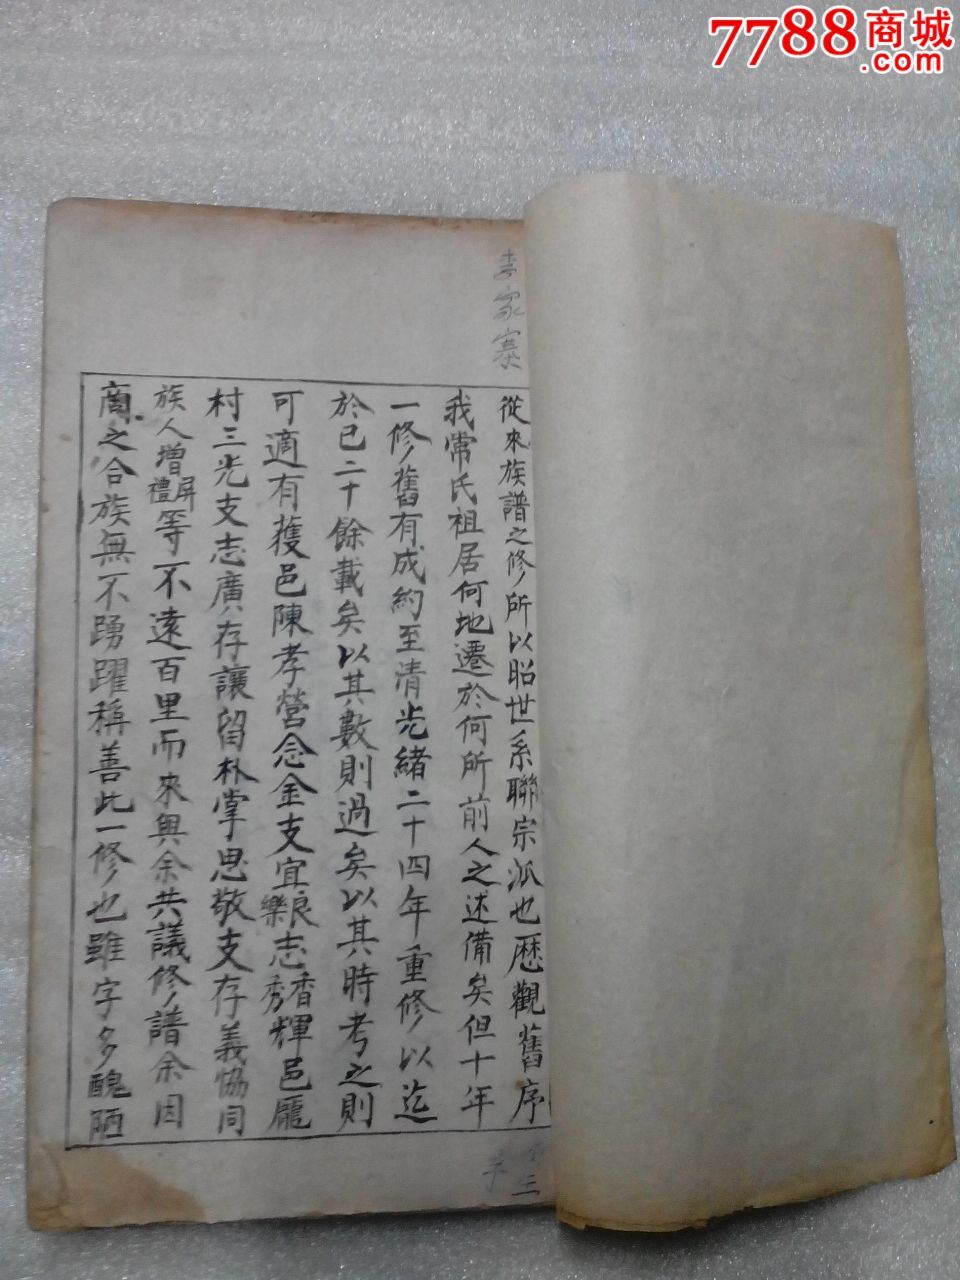 7788商城
.com
李家寨
從來族譜之修所以昭世系聯宗派也歷觀舊序
我常氏祖居何地遷於何所前人之述備矣但十年
一修舊有成約至清光緒二十四年重修以迄
於已二十餘載矣以其數則過矣以其時考之則
可適有獲邑陳孝營念金支宜良樂志香秀輝邑龎
村三光支志廣存讓留朴掌思敬支存義恊同
族人增屏禮等不遠百里而來與余共議修譜余因
商之合族無不踴躍稱善此一修也雖字多醜陋